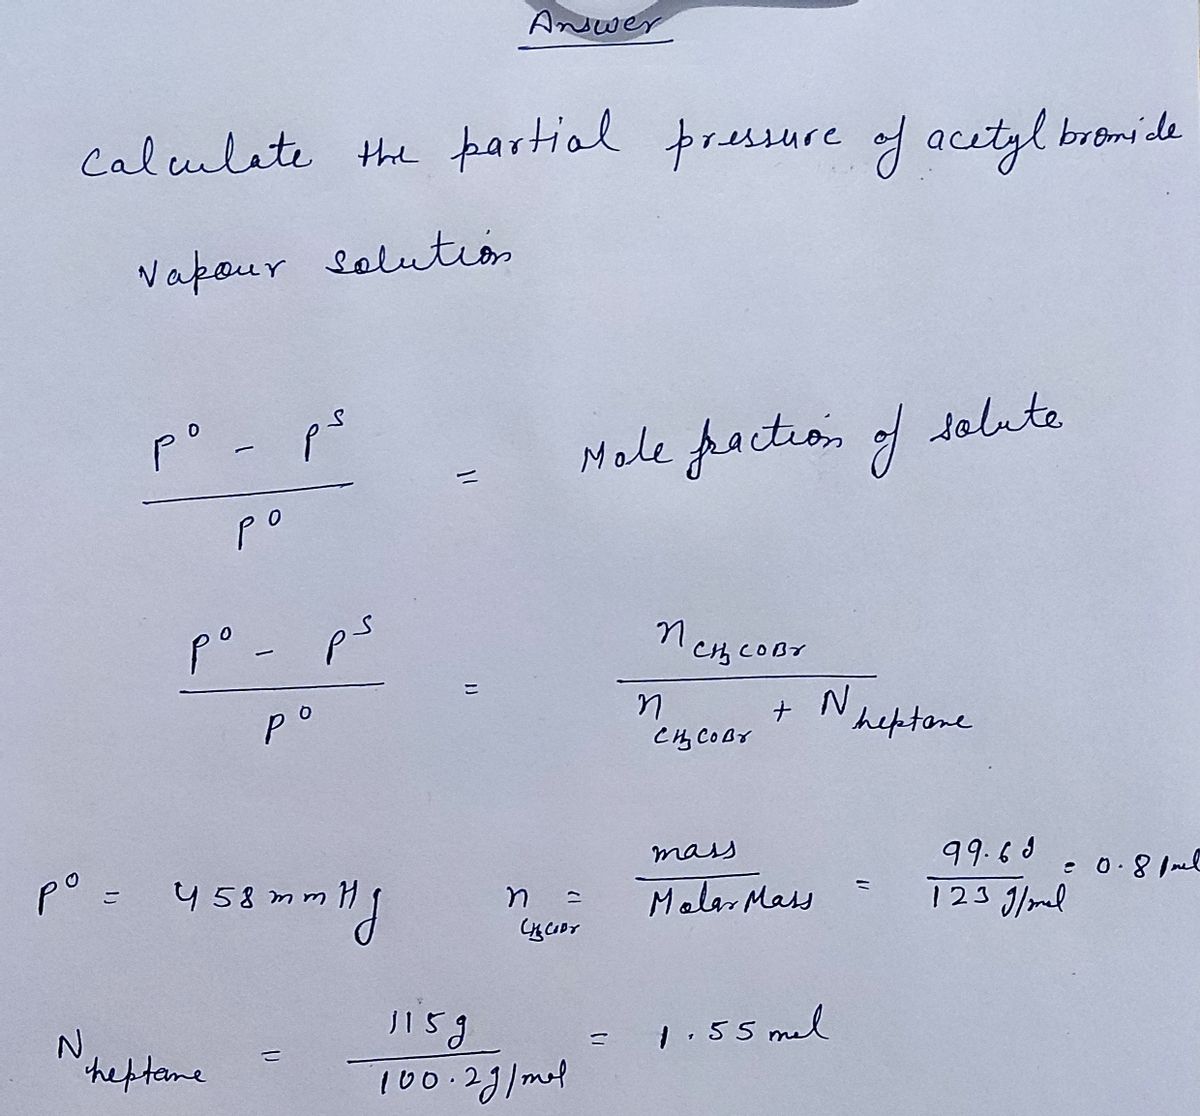 Answer
Calculate the partial pressure of acetyl bromide
Vapour solution
P⁰ - Pˢ / P⁰ = Mole fraction of solute
P⁰ - Pˢ / P⁰ = n CH₃COBr / n CH₃COBr + N heptane
P⁰ = 458 mm Hg n CH₃COBr = mass / Molar Mass = 99.6 g / 123 g/mol = 0.81 mol
N heptane = 115 g / 100.2 g/mol = 1.55 mol